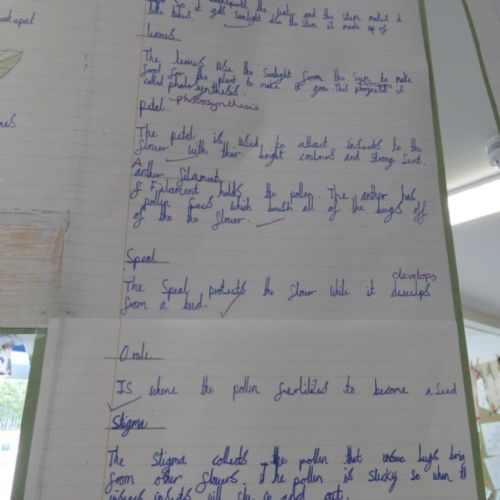 sepal
the water and the stem makes
so it gets sunlight also the stem is made up of
like tubes.
leaves
The leaves use the Sunlight from the Sun to make
food for the plant to make it grow. This progress is
called photosynthesis.
petal photosynthesis
The petal is used to attact insects to the
flower with their bright coulours and strong sent.
A
anther filament
& Filament holds the pollen. The anther has
pollen sacs which brush all of the bugs off
of the the flower.
Speal
develops
The Speal protects the flower while it devlops
from a bud.
Ovule
IS where the pollen fertilizes to become a seed
Stigma
The stigma collects the pollen that bugs bring
from other flowers. The pollen is sticky so when th
insects will go in and out.